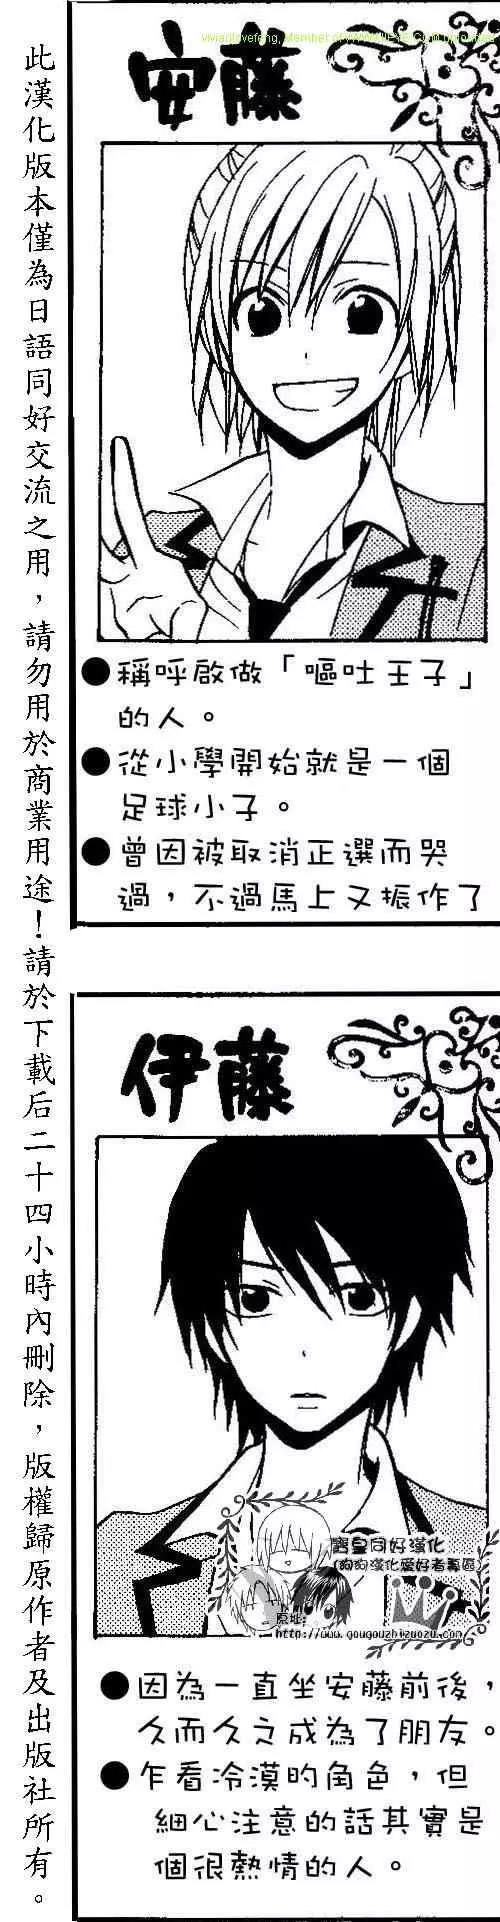 vivianlovefeng, Member of
安藤
●稱呼啟做「嘔吐王子」
的人。
●從小學開始就是一個
足球小子。
●曾因被取消正選而哭
過，不過馬上又振作了
伊藤
寶皇同好漢化
(狗狗漢化愛好者專區)
原址:
http://www.gougouzhizuozu.com
●因為一直坐安藤前後，
久而久之成為了朋友。
●乍看冷漠的角色，但
細心注意的話其實是
個很熱情的人。
此漢化版本僅為日語同好交流之用，請勿用於商業用途！請於下載后二十四小時內刪除，版權歸原作者及出版社所有。